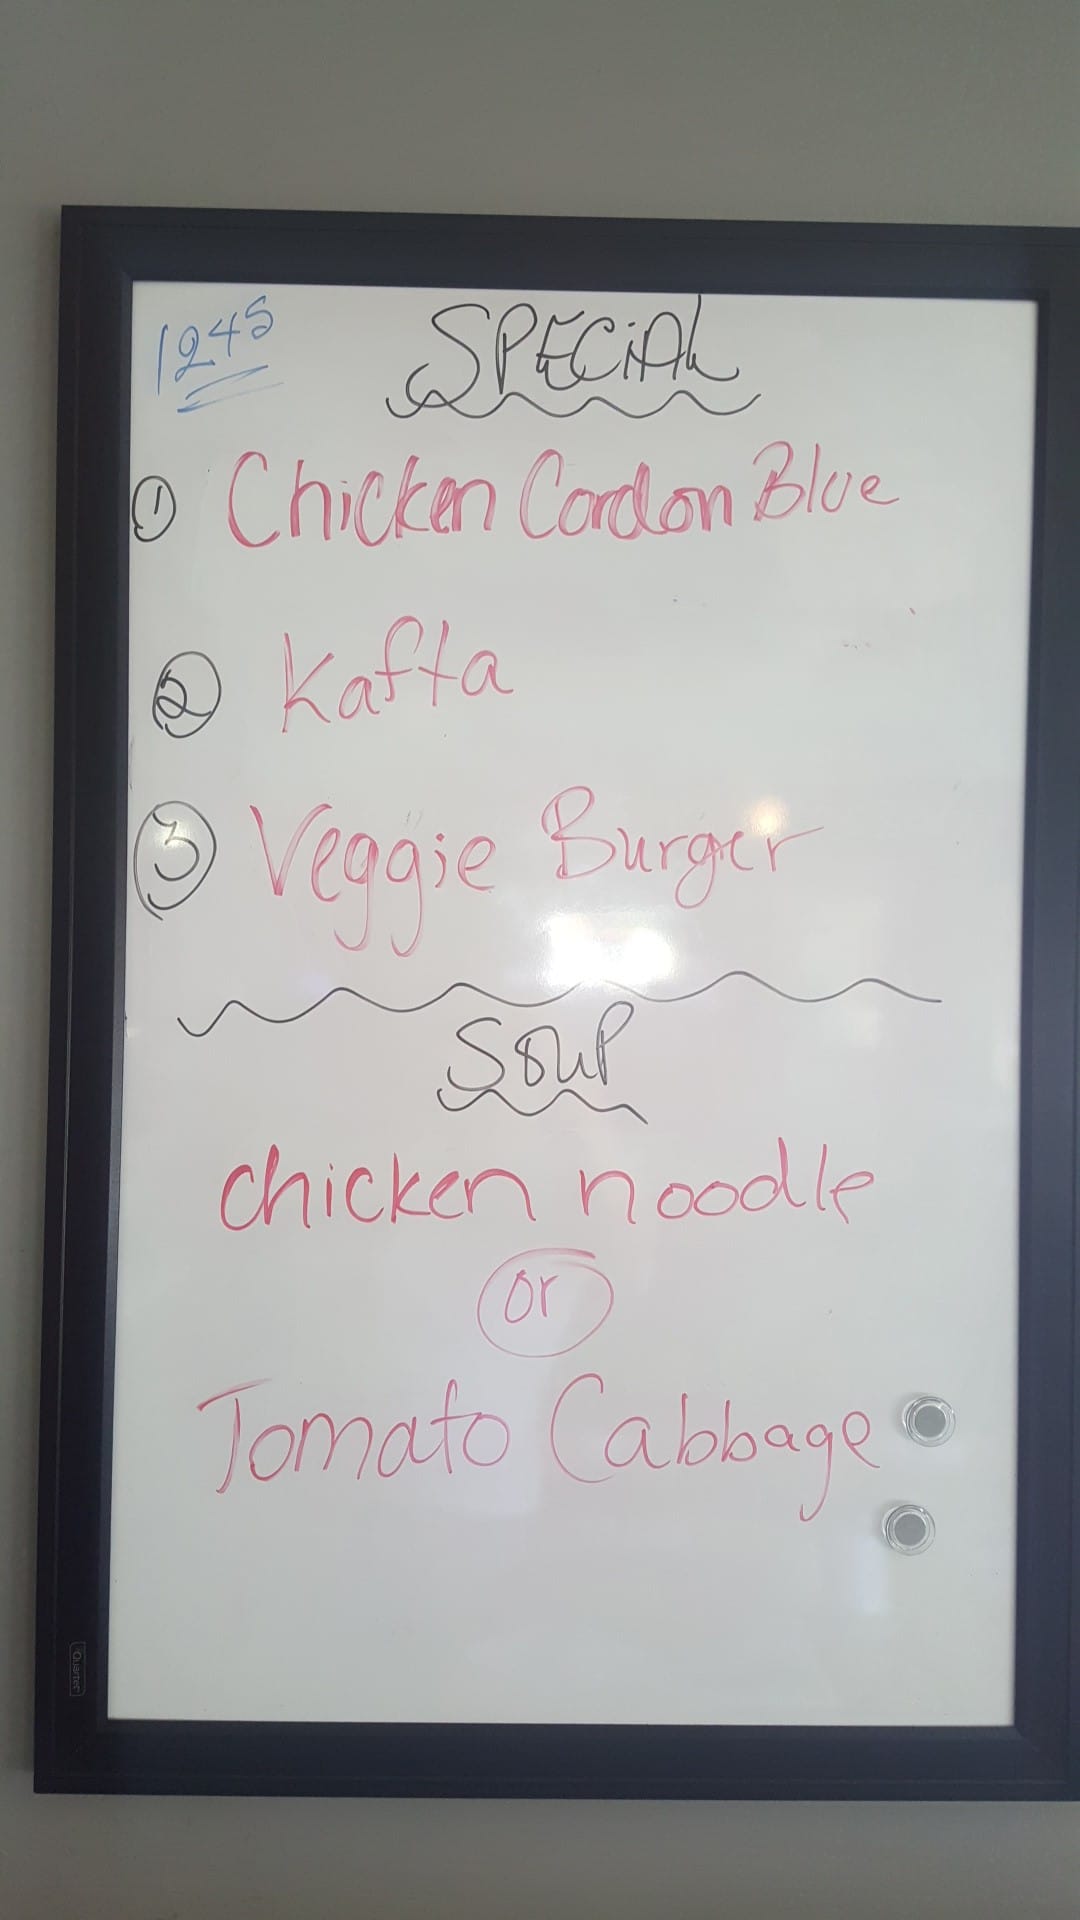 1245
SPECiAL
1 Chicken Cordon Blue
2 Kafta
3 Veggie Burger
SOUP
chicken noodle
or
Tomato Cabbage
Quartet